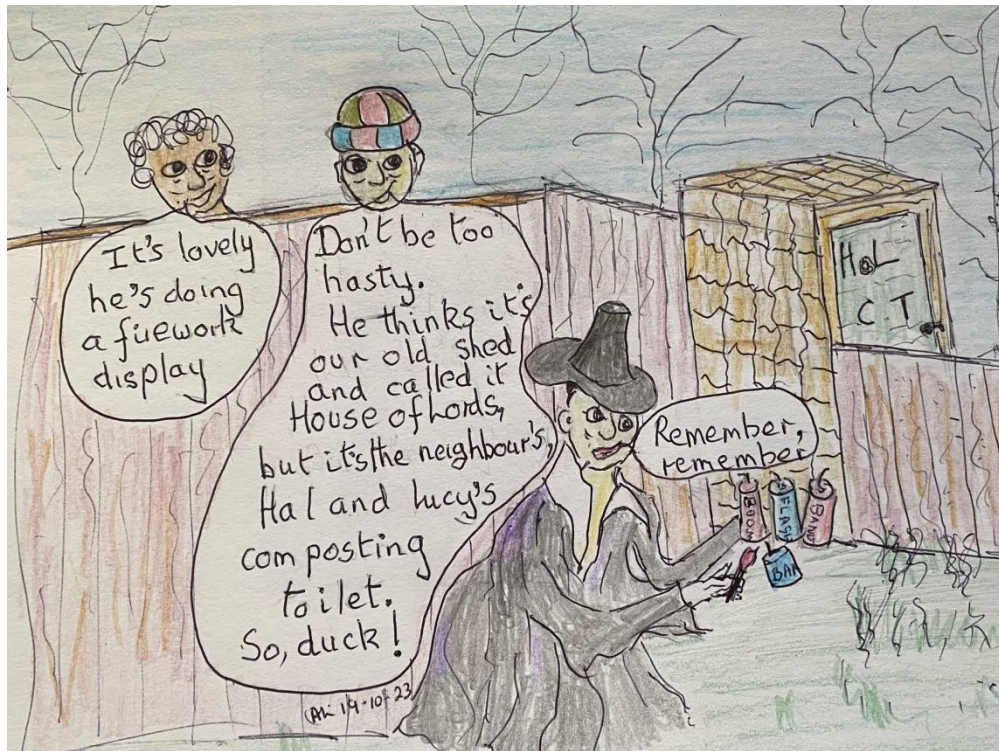 It's lovely
he's doing
a fuework
display
Don't be too
hasty.
He thinks it's
our old shed
and called it
House of Lords,
but it's the neighbour's,
Hal and Lucy's
composting
toilet.
So, duck!
Remember,
remember
H&L
C T
BOOM
FLASH
BANG
BAN
19-10-23